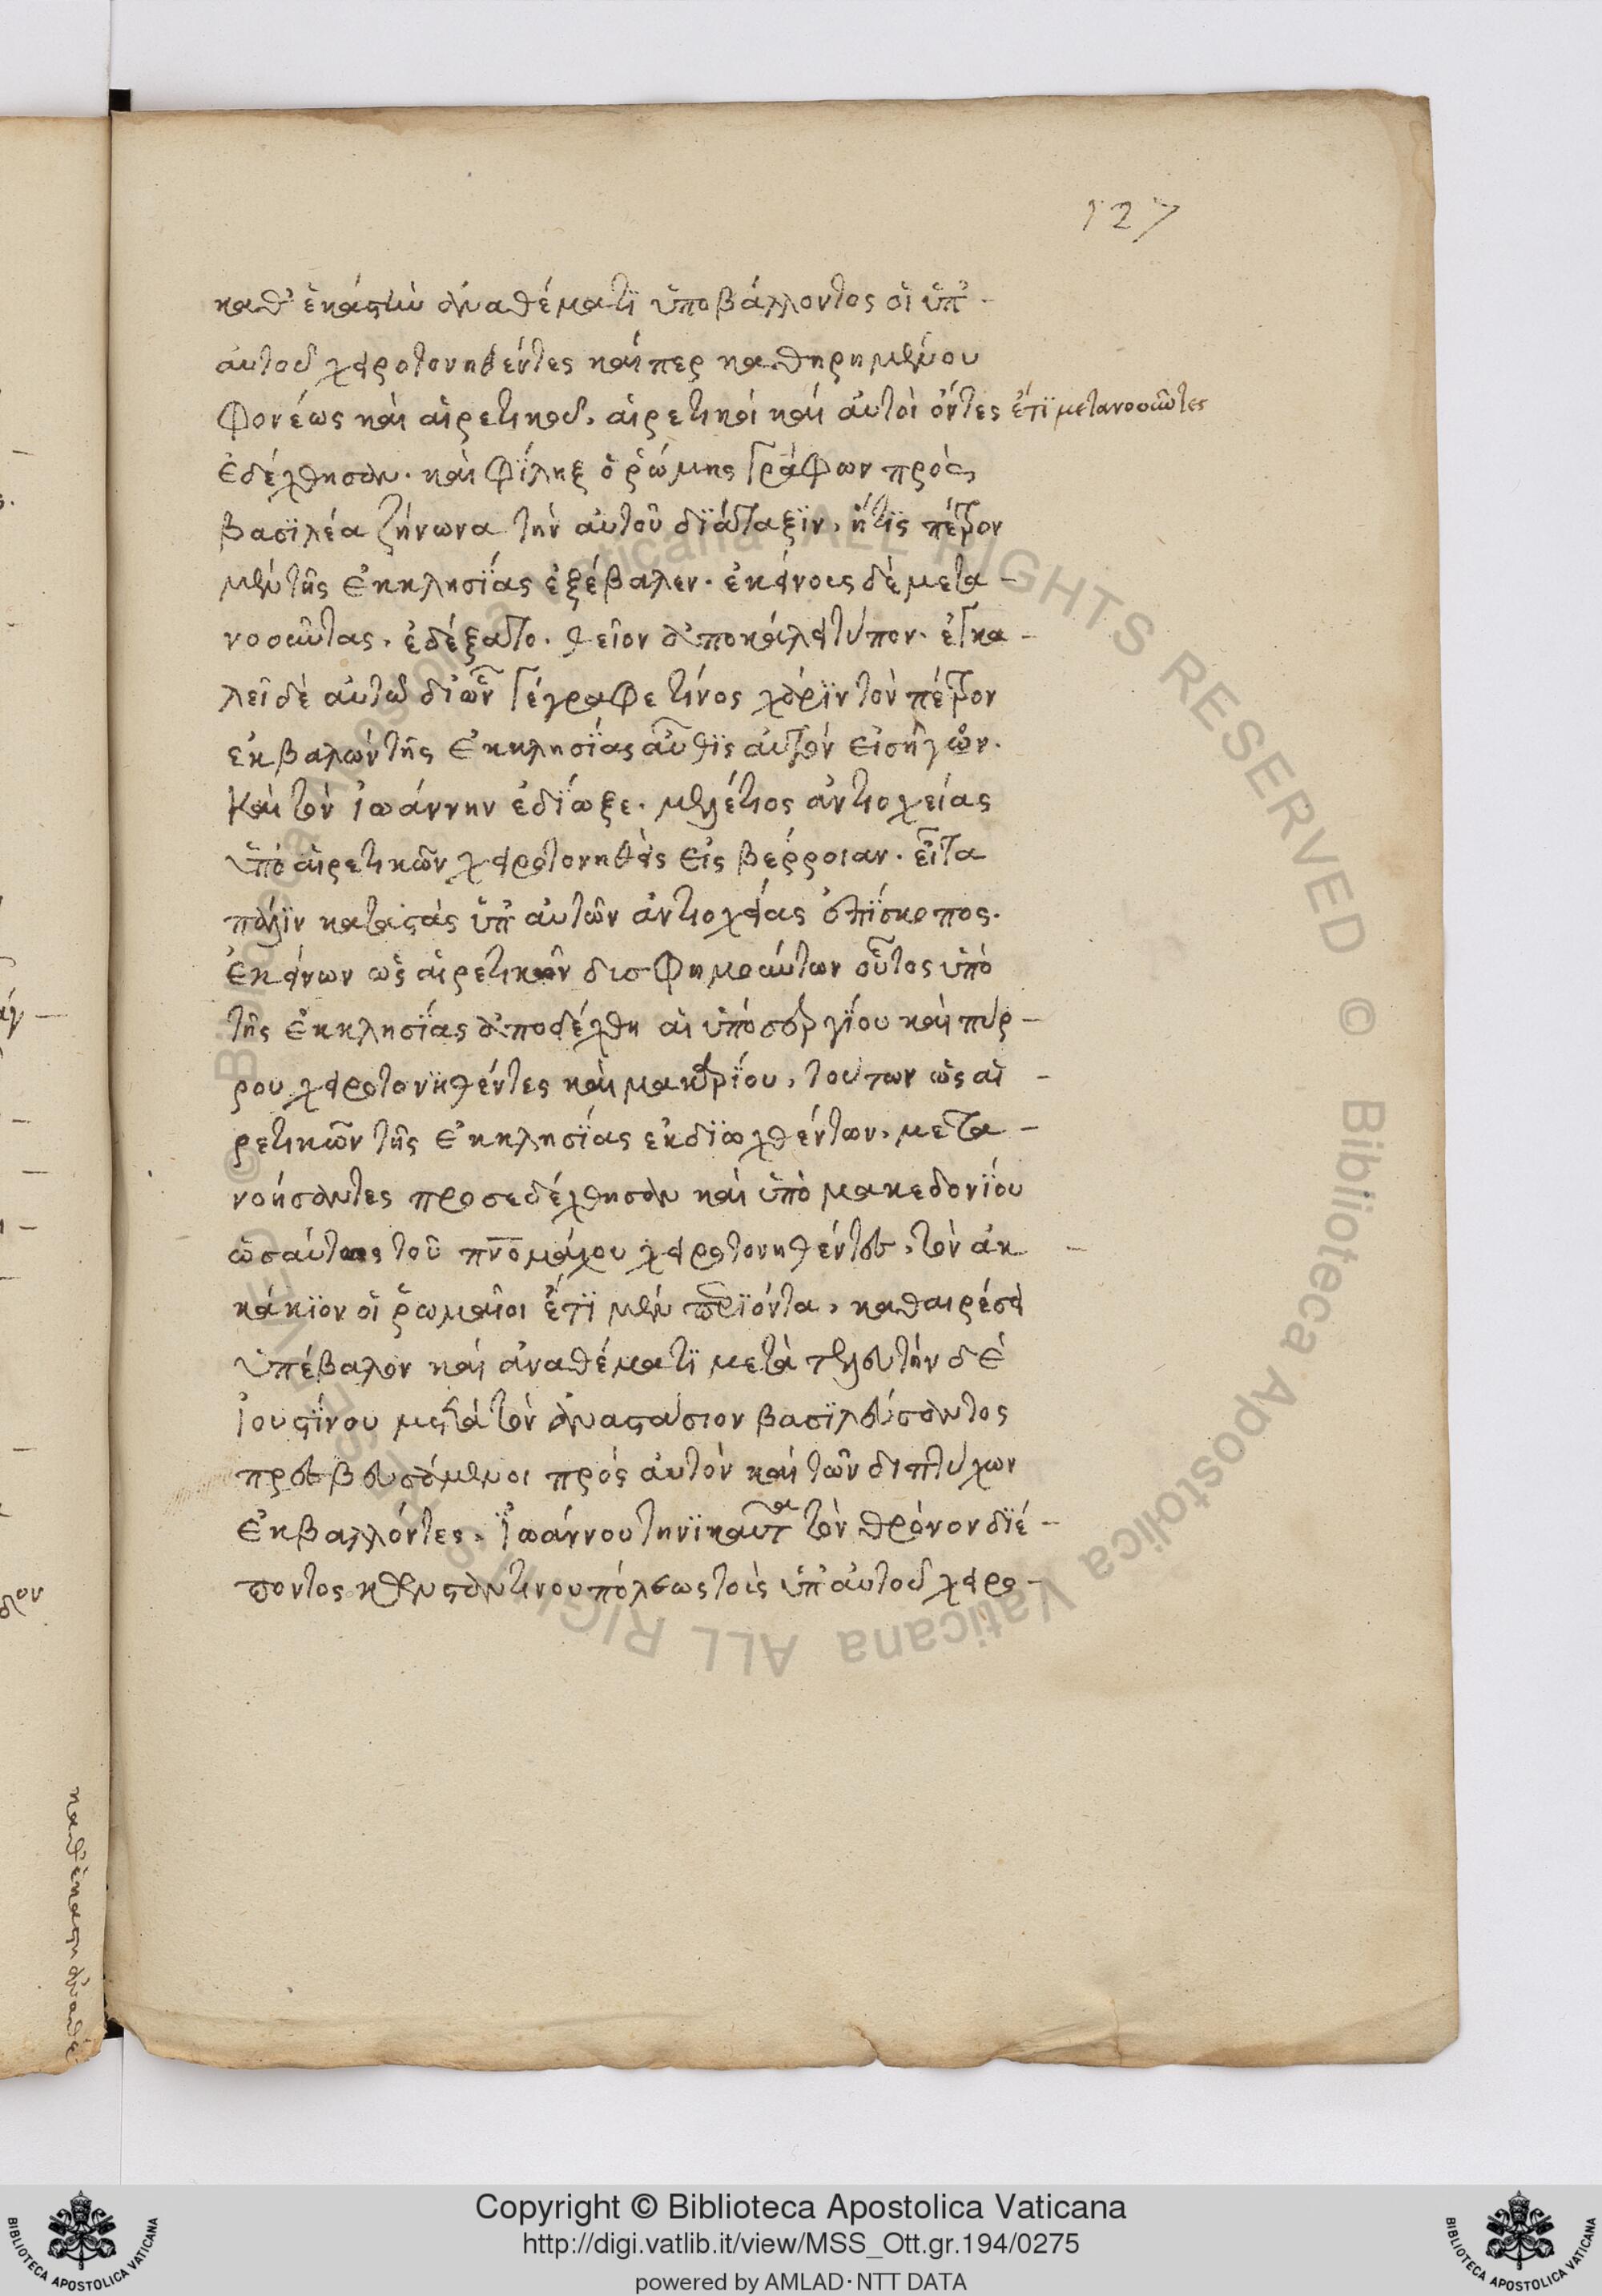 127
καθ' ἑκάστην ἀναθέματϊ ὑποβάλλοντος οἱ ὑπ'
αὐτοῦ χειροτονηθέντες καίπερ καθηρημένου
φονέως καὶ αἱρετικοῦ, αἱρετικοὶ καὶ αὐτοὶ ὄντες ἔτϊ μετανοοῦντες
ἐδέχθησαν. καὶ Φῖληξ ὁ ῥώμης γράφων πρὸς
βασϊλέα ζήνωνα τὴν αὐτοῦ δϊάταξϊν, ἥτϊς πέτρον
μὲν τῆς ἐκκλησϊας ἐξέβαλεν. ἐκείνοις δὲ μετα-
νοοῦντας, ἐδέξατο. θεῖον ἀποκαλεῖ τύπον. ἐγκα-
λεῖ δὲ αὐτῶ δι' ὧν γέγραφε τίνος χάρϊν τὸν πέτρον
ἐκβαλὼν τῆς ἐκκλησϊας αὖθϊς αὐτὸν εἰσῆγεν.
καὶ τὸν ἰωάννην ἐδϊωξε. μελέτιος ἀντιοχείας
ὑπὸ αἱρετικῶν χειροτονηθεὶς εἰς βέρροιαν. εἶτα
πάλϊν καταστὰς ὑπ' αὐτῶν ἀντιοχείας ἐπϊσκοπος.
ἐκείνων ὡς αἱρετικῶν δισφημούντων οὗτος ὑπὸ
τῆς ἐκκλησϊας ἀπεδέχθη αἱ ὑπὸ σεργϊου καὶ πύρ-
ρου χειροτονϊθέντες καὶ μακαρϊου, τούτων ὡς αἱ-
ρετικῶν τῆς ἐκκλησϊας ἐκδϊωχθέντων, μετα-
νοήσαντες προσεδέχθησαν καὶ ὑπὸ μακεδονϊου
ὡσαύτως τοῦ πνομάχου χειροτονηθέντες, τὸν ἀκ-
κάκϊον οἱ ῥωμαῖοι ἔτϊ μὲν περϊόντα, καθαιρέσει
ὑπέβαλον καὶ ἀναθέματϊ μετὰ τελευτὴν δὲ
ἰουστϊνου μετὰ τὸν ἀναστάσιον βασϊλεύσαντος
πρεσβευσάμενοι πρὸς αὐτὸν καὶ τῶν διπτύχων
ἐκβαλλόντες, ἰωάννου τηνϊκαῦτα τὸν θρόνον δϊέ-
ποντος κωνσταντινουπόλεως τοῖς ὑπ' αὐτοῦ χειρο-
Copyright © Biblioteca Apostolica Vaticana
http://digi.vatlib.it/view/MSS_Ott.gr.194/0275
powered by AMLAD·NTT DATA